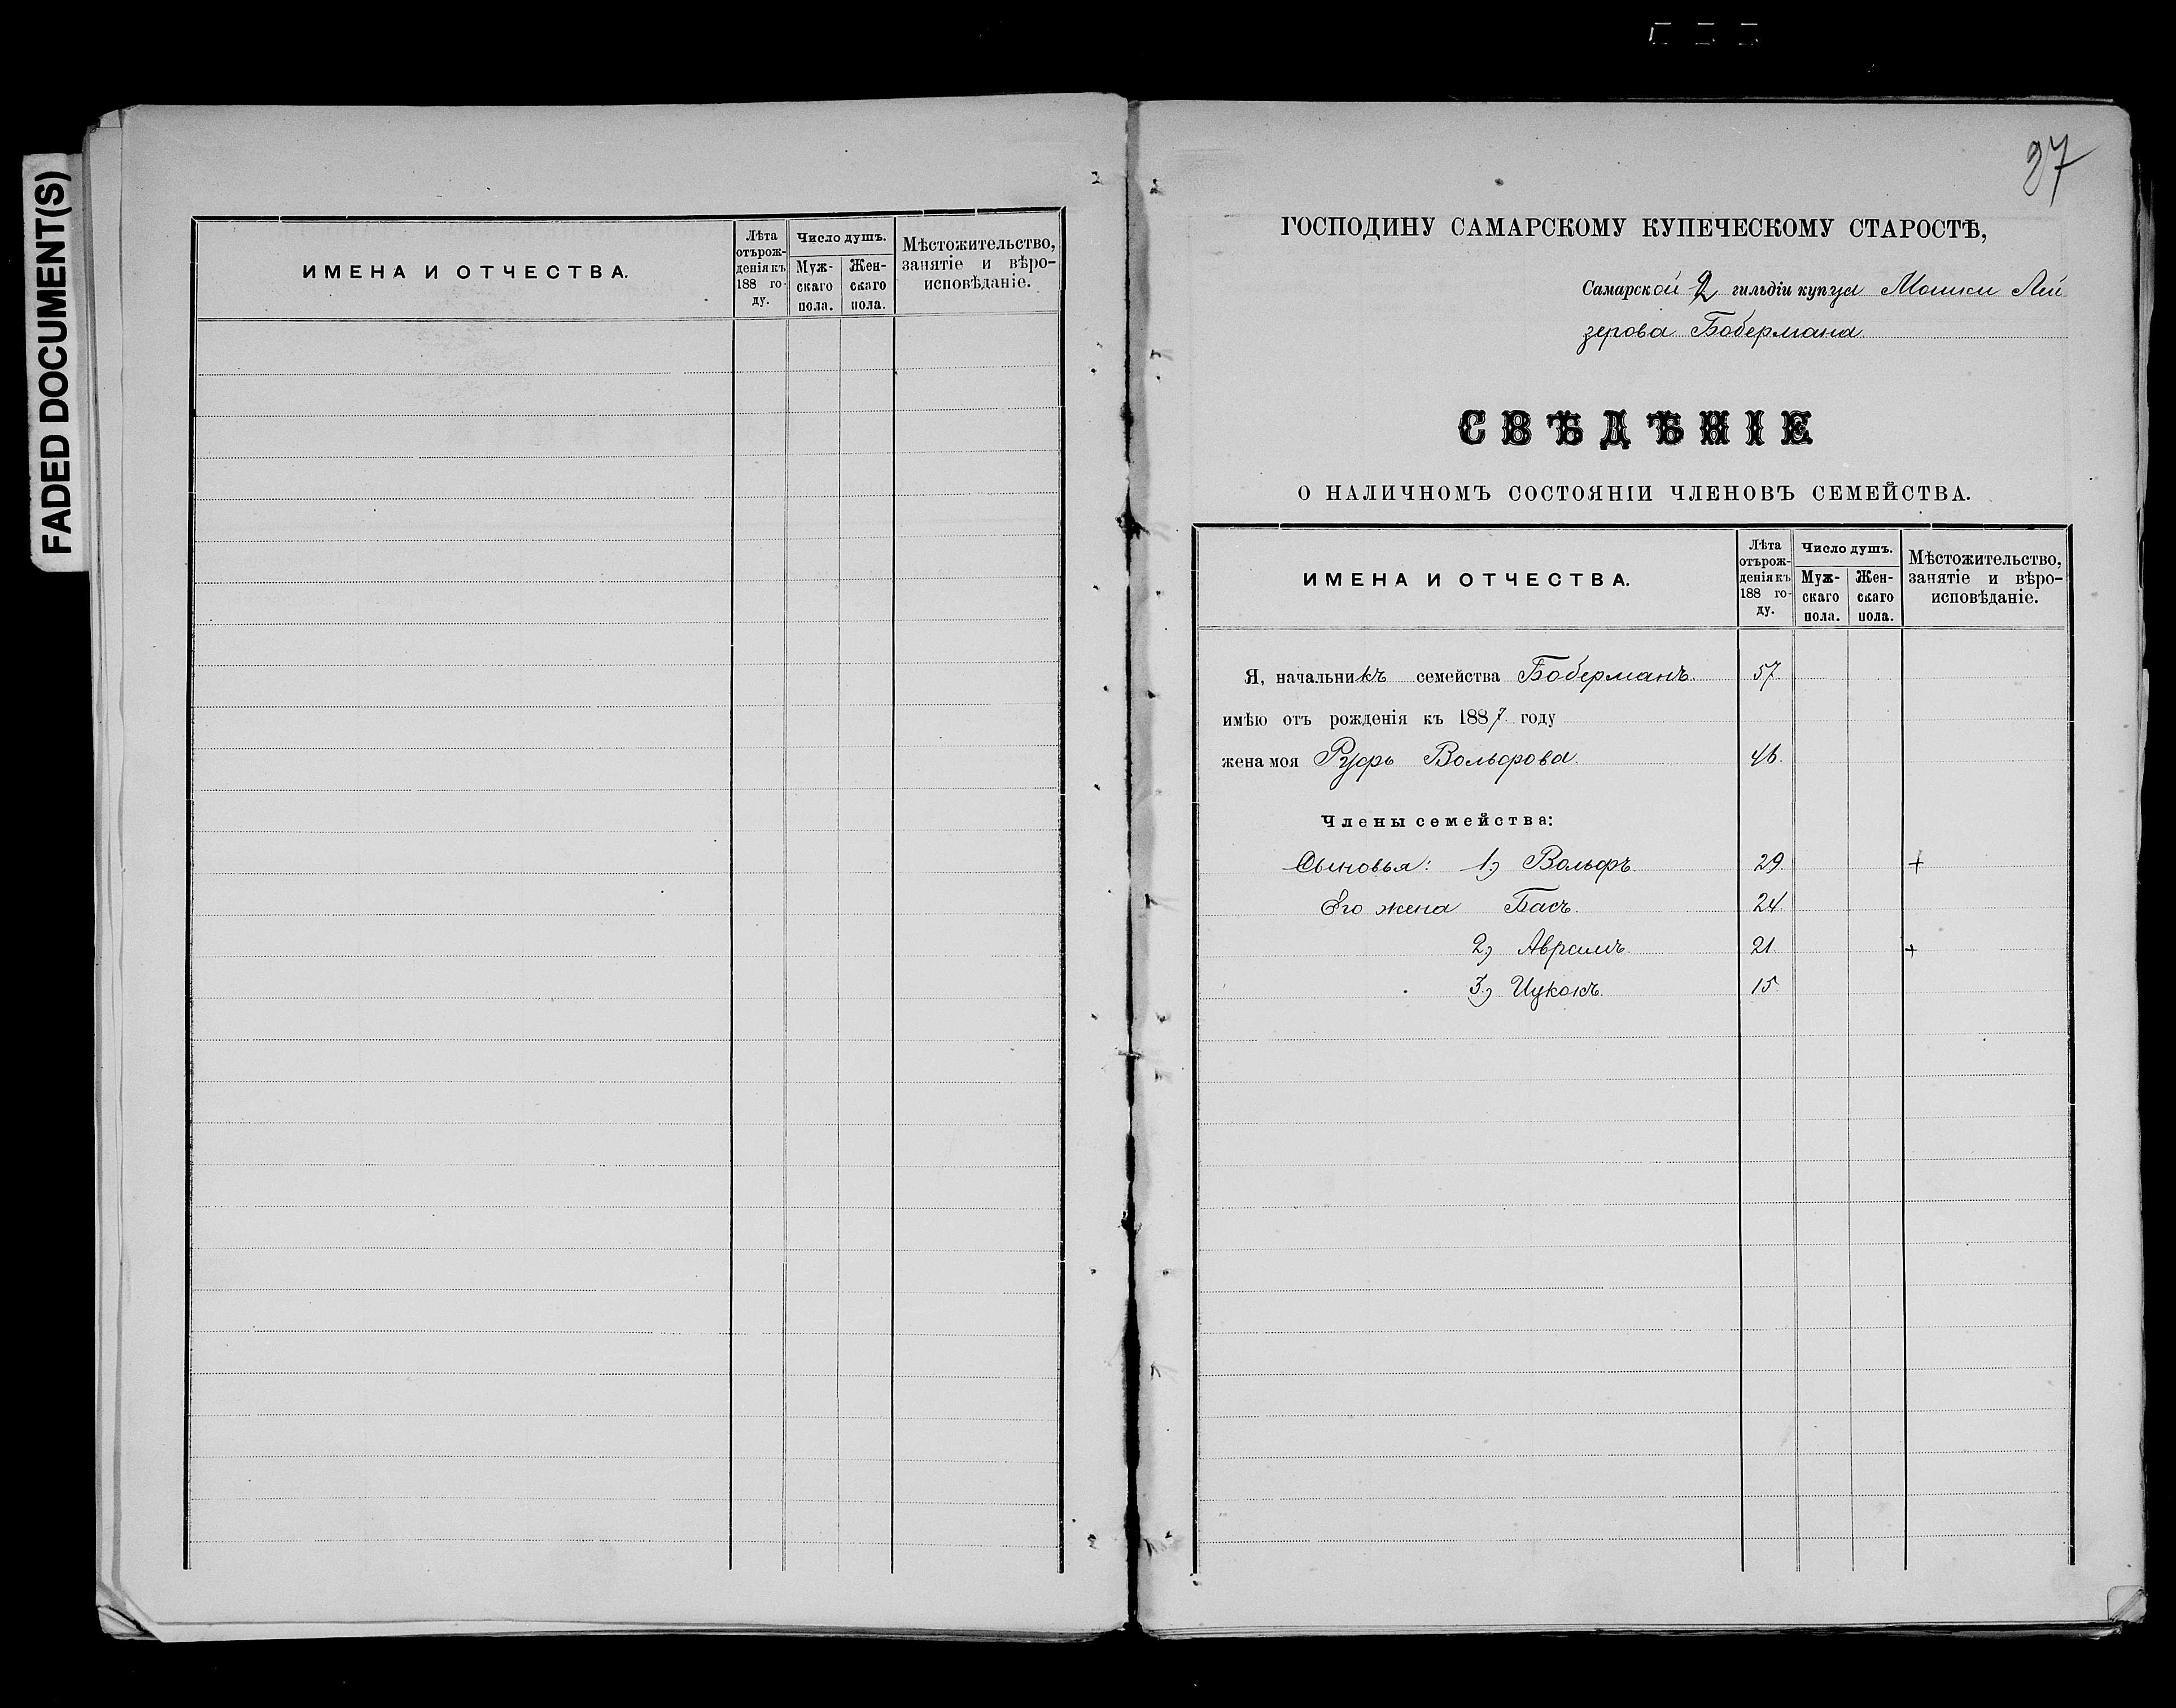 FADED DOCUMENT(S)
ИМЕНА И ОТЧЕСТВА.
Лѣта отърожденія къ 188 году.
Число душъ.
Мужскаго пола.
Женскаго пола.
Мѣстожительство, занятіе и вѣроисповѣданіе.
27
ГОСПОДИНУ САМАРСКОМУ КУПЕЧЕСКОМУ СТАРОСТѢ,
Самарской 2 гильдіи купца Мошки Лей
зерова Бобермана
СВѢДѢНІЕ
О НАЛИЧНОМЪ СОСТОЯНІИ ЧЛЕНОВЪ СЕМЕЙСТВА.
ИМЕНА И ОТЧЕСТВА.
Лѣта отърожденія къ 188 году.
Число душъ.
Мужскаго пола.
Женскаго пола.
Мѣстожительство, занятіе и вѣроисповѣданіе.
Я, начальникъ семейства Боберманъ. 57
имѣю отъ рожденія къ 1887 году
жена моя Руфь Вольфова 46.
Члены семейства:
Сыновья: 1) Вольфъ 29 +
Его жена Бася 24
2) Аврамъ 21 +
3) Ицкокъ 15